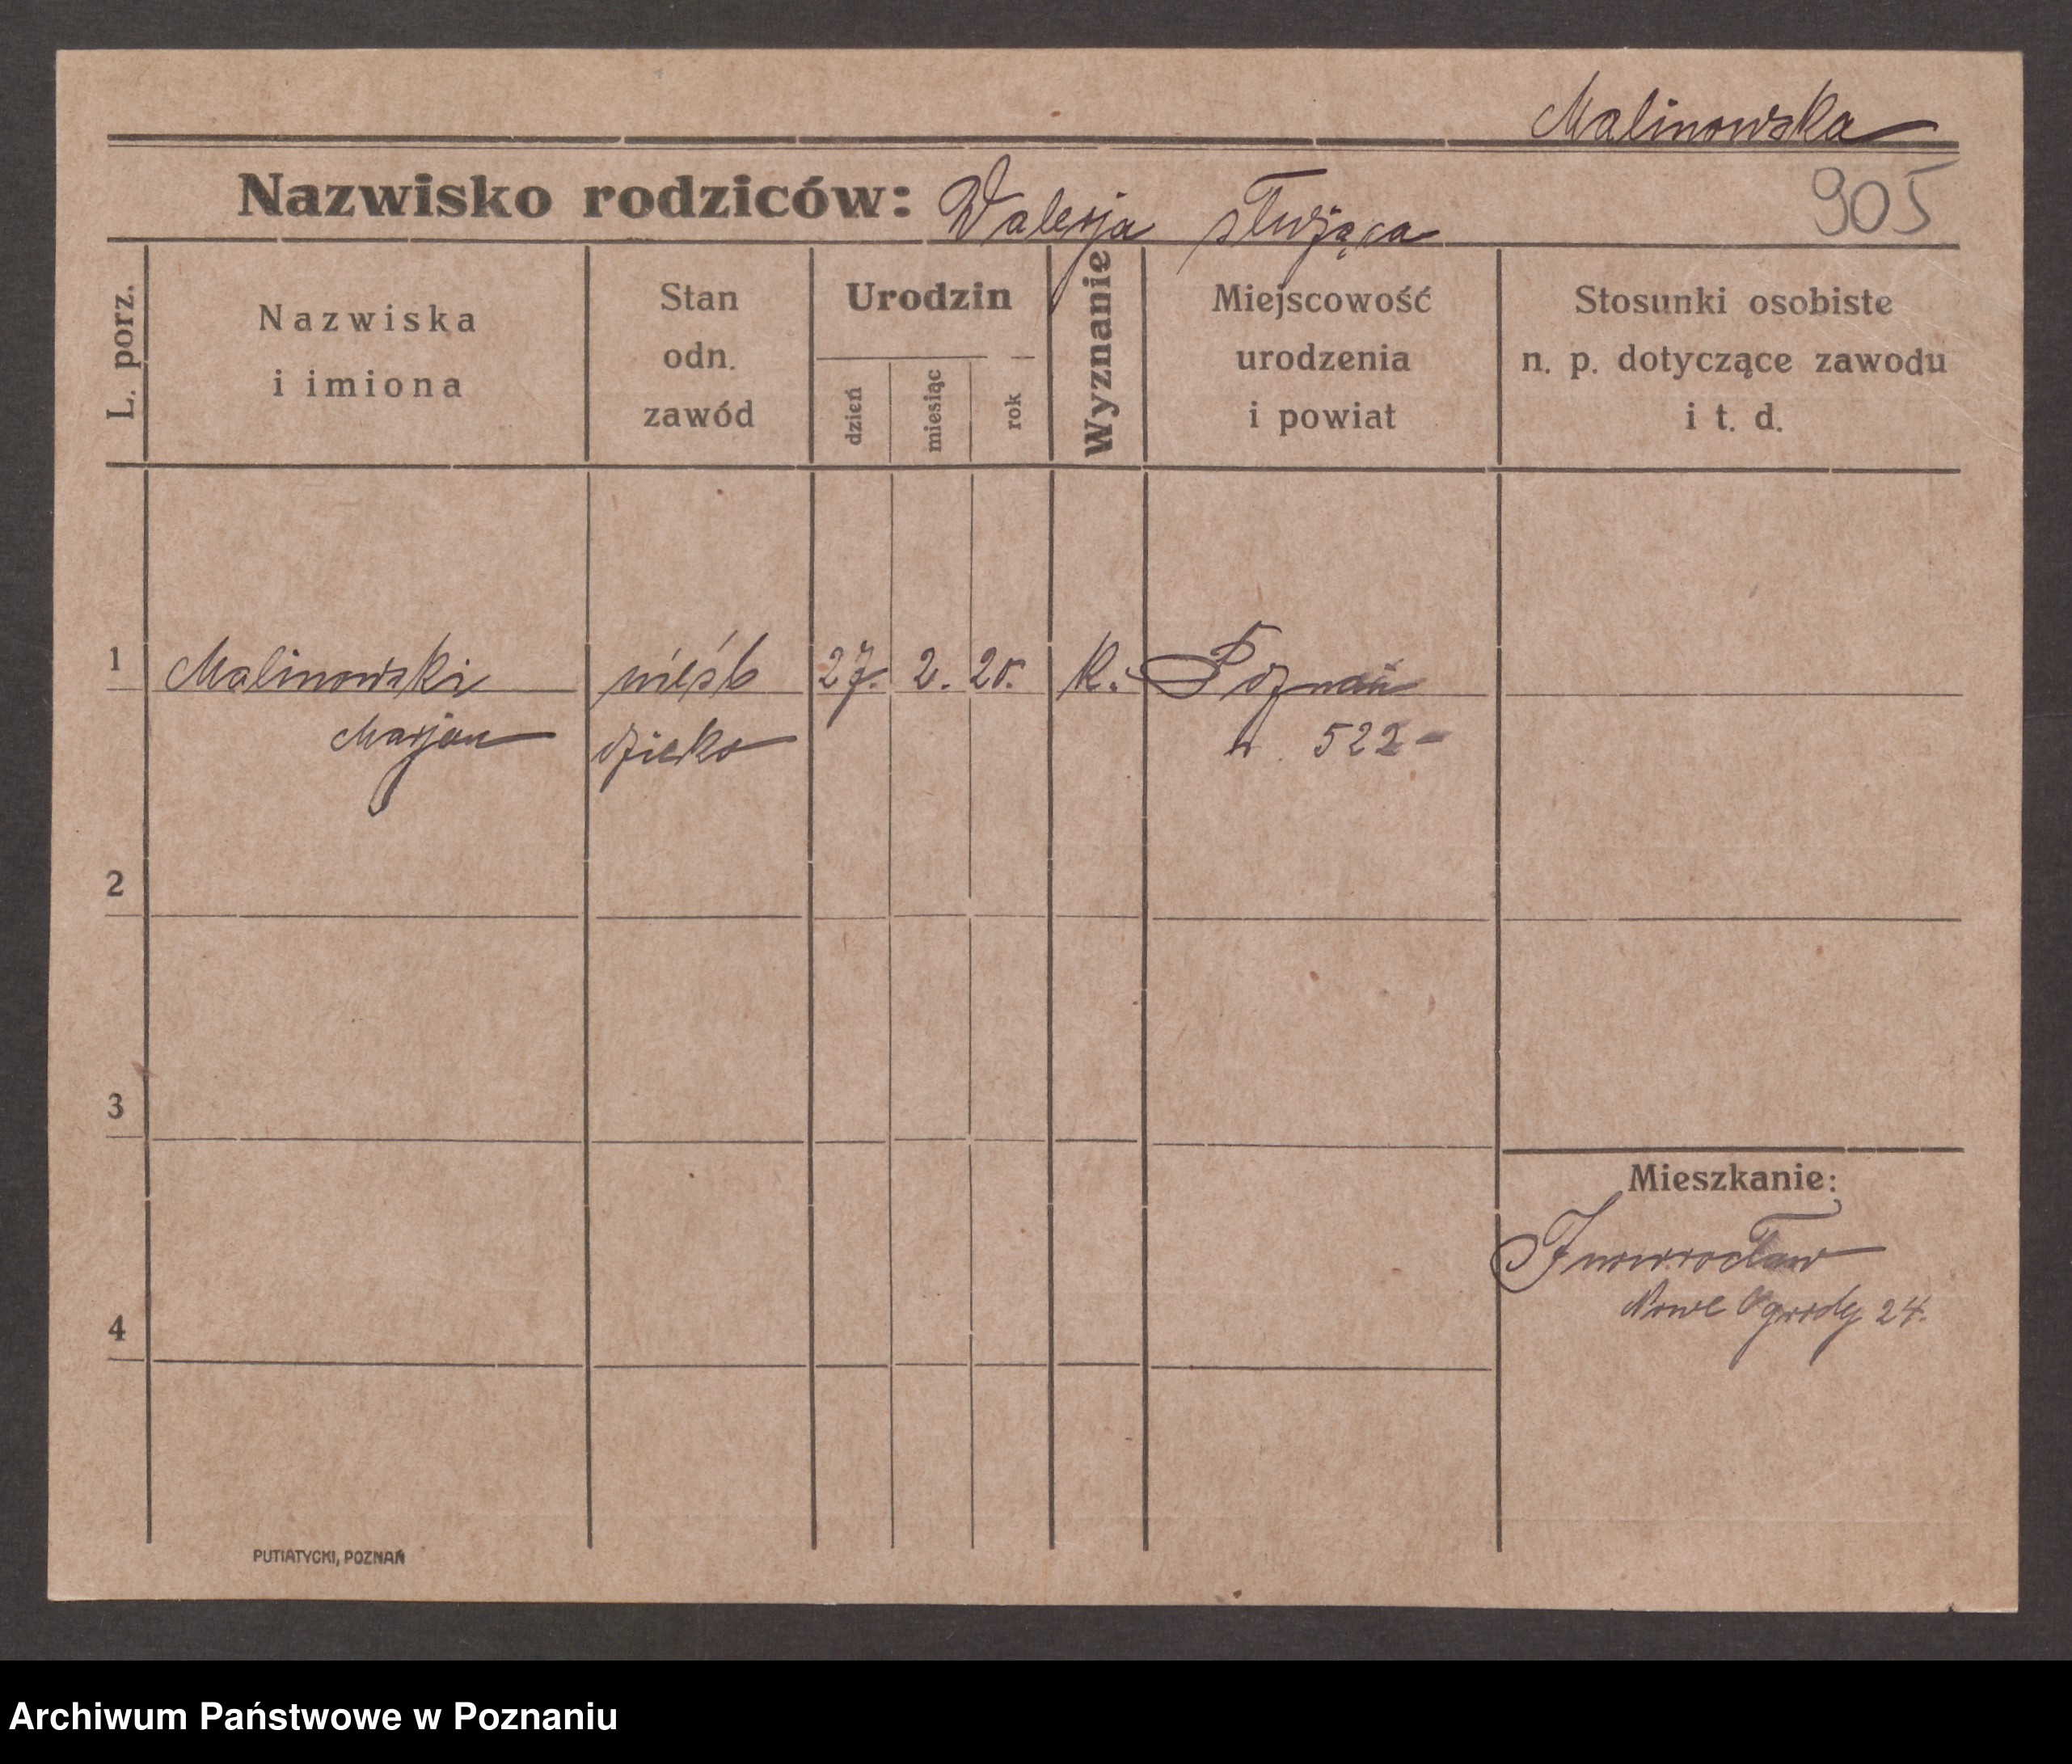 Malinowska
Nazwisko rodziców: Walerja służąca
905
L. porz.
Nazwiska i imiona
Stan odn. zawód
Urodzin
dzień
miesiąc
rok
Wyznanie
Miejscowość urodzenia i powiat
Stosunki osobiste n. p. dotyczące zawodu i t. d.
1 Malinowski nieśb 27. 2. 20. k. Poznań
Marjan dziecko 522-
2
3
Mieszkanie:
Inowrocław
Nowe Ogrody 24.
4
PUTIATYCKI, POZNAŃ
Archiwum Państwowe w Poznaniu